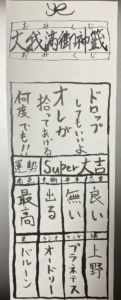 大我満御神籤
ドロップ
してもいいよ
オレが
拾ってあげる
何度でも!!
運勢
Super大吉
良い
無い
出る
最高
上野
プラネテス
オードリー
バルーン